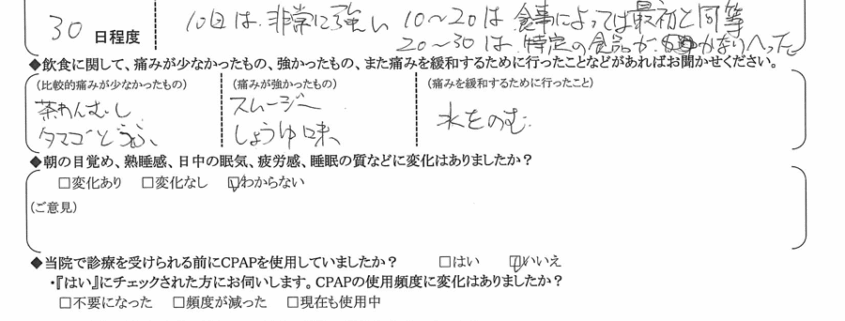 30 日程度
10日は、非常に強い 10〜20は食事によっては最初と同等
20〜30は、特定の食品が、かなりへった
◆飲食に関して、痛みが少なかったもの、強かったもの、また痛みを緩和するために行ったことなどがあればお聞かせください。
(比較的痛みが少なかったもの) (痛みが強かったもの) (痛みを緩和するために行ったこと)
茶わんむし スムージー 水をのむ
タマゴどうふ しょうゆ味
◆朝の目覚め、熟睡感、日中の眠気、疲労感、睡眠の質などに変化はありましたか?
□変化あり □変化なし ☑わからない
(ご意見)
◆当院で診療を受けられる前にCPAPを使用していましたか? □はい ☑いいえ
・『はい』にチェックされた方にお伺いします。CPAPの使用頻度に変化はありましたか?
□不要になった □頻度が減った □現在も使用中